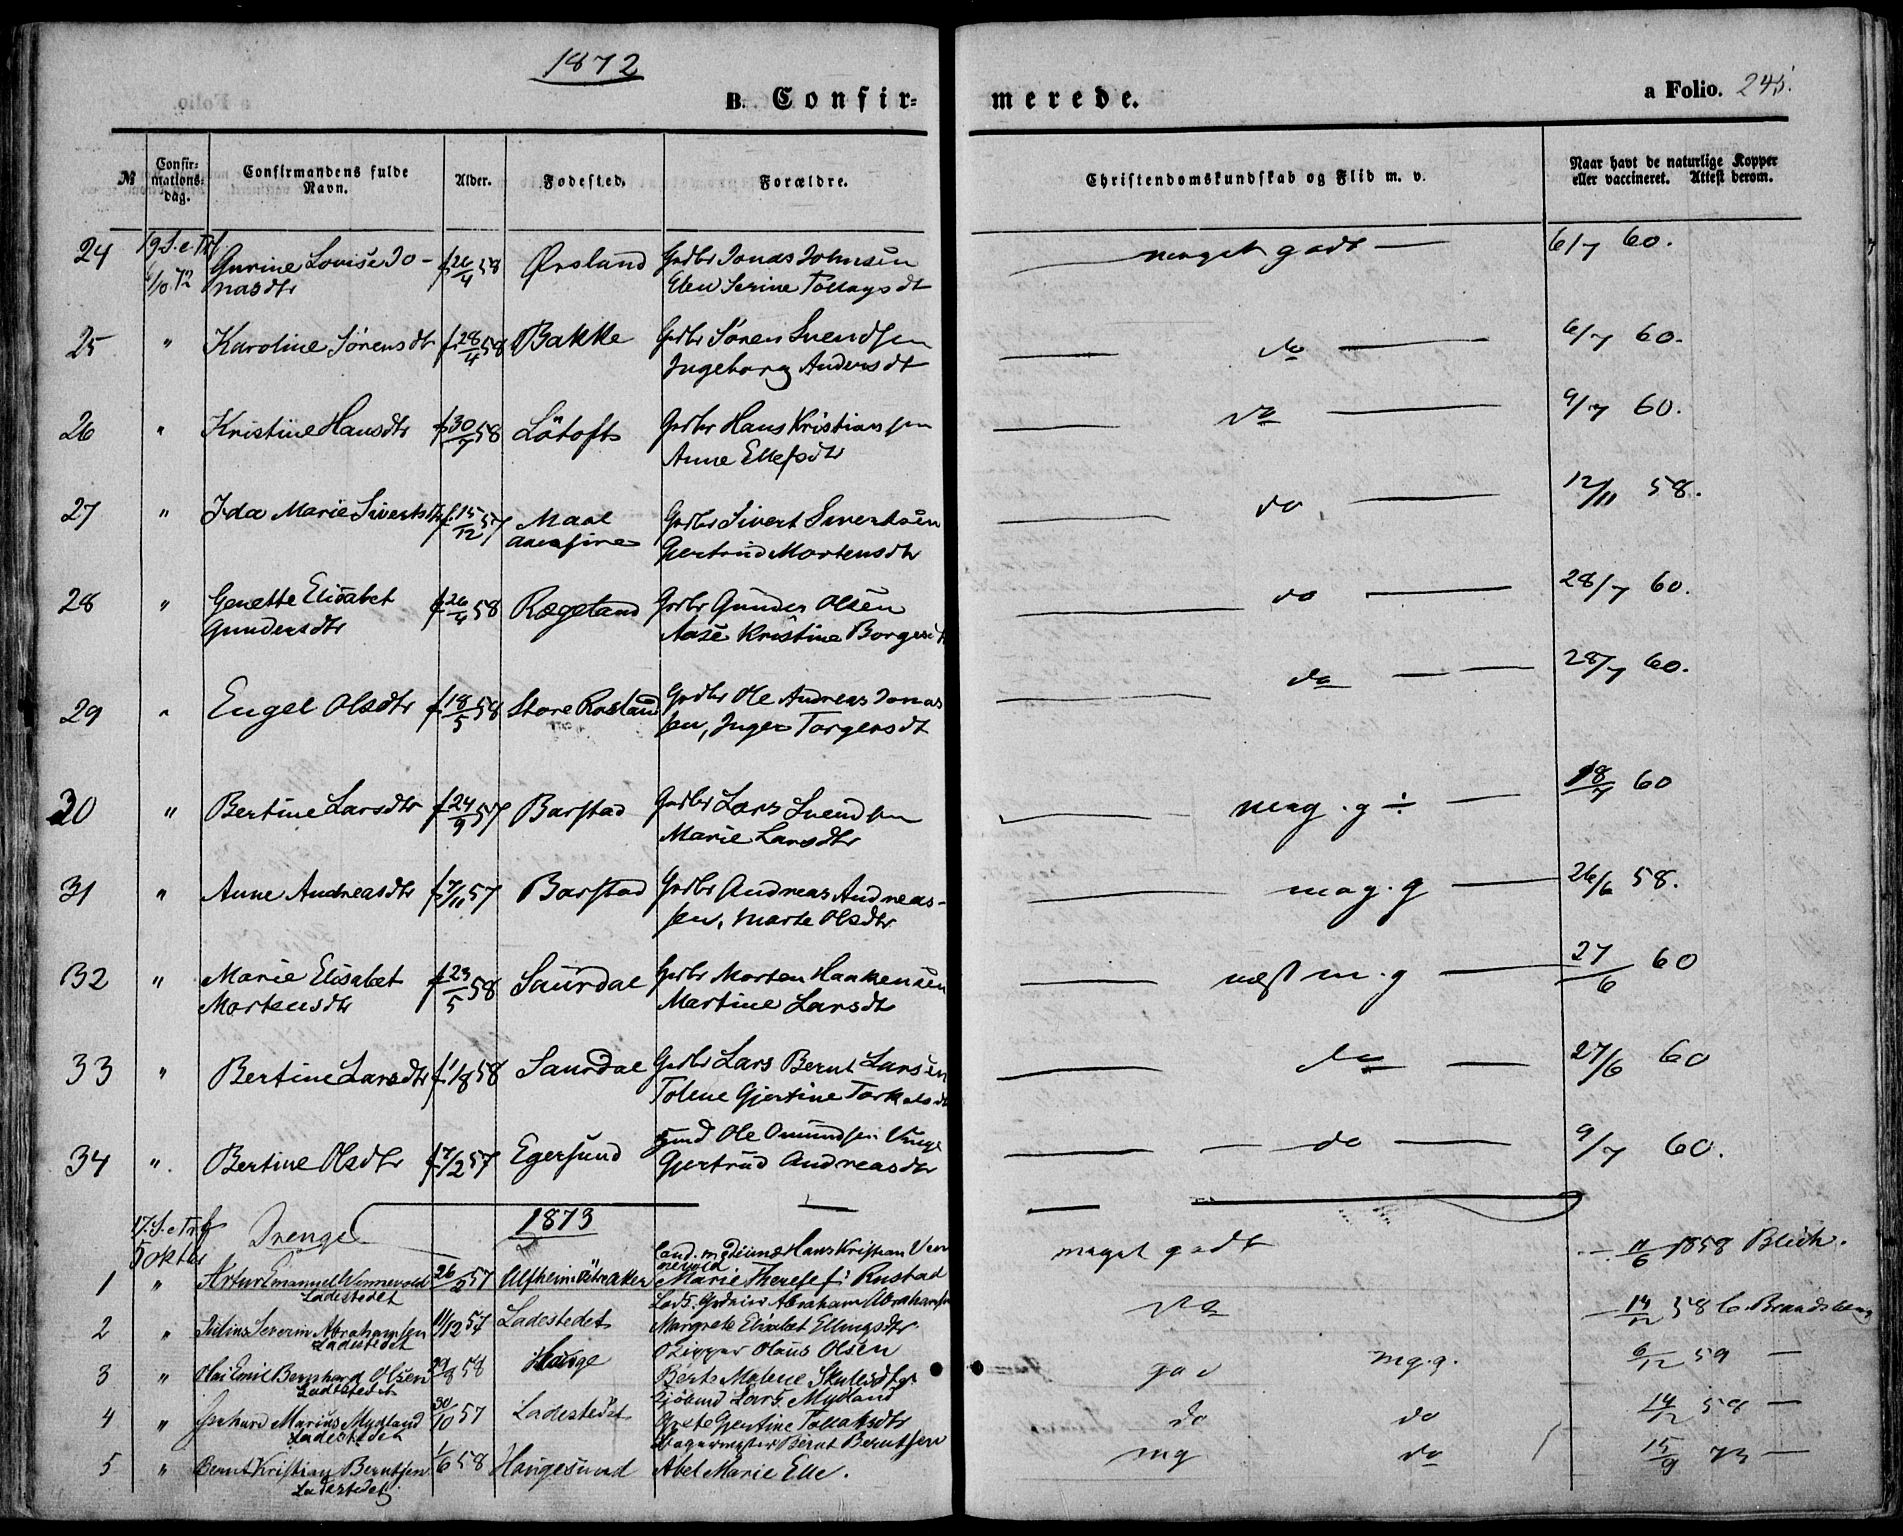 1872
B. Confir=
merede.
a Folio. 245.
№
Confir=
mations=
dag.
Confirmandens fulde
Navn.
Alder.
Fødested.
Forældre.
Christendomskundskab og Flid m. v.
Naar havt de naturlige Kopper
eller vaccineret. Attest derom.
24 19 S. e. Trf. Gurine Lovise Jo- f 26/4 58 Ørsland Grdbr Jonas Johnsen meget godt 6/7 60.
6/10 72 nasdtr Elen Serine Tollagsdt
25 " Karoline Sørensdtr f 28/4 58 Bakke Grdbr Søren Svendsen do 6/7 60.
Ingeborg Andersdt
26 " Kristine Hansdtr f 30/7 58 Løtoft Grdbr Hans Kristiansen do 9/7 60.
Anne Ellefsdtr
27 " Ida Marie Sivertsdtr f 15/12 57 Maal Grdbr Sivert Sivertsen do 12/11 58.
Gjertrud Mortensdtr
28 " Genette Elisabet f 26/4 58 Rægeland Grdbr Gunder Olsen do 28/7 60.
Gundersdtr Aase Kristine Borgesdt
29 " Engel Olsdtr f 18/5 58 Store Rosland Grdbr Ole Andreas Jonas do 28/7 60.
sen, Inger Torgersdt
30 " Bertine Larsdtr f 24/9 57 Barstad Grdbr Lars Svendsen meg. g ÷ 18/7 60
Marie Larsdtr
31 " Anne Andreasdtr f 7/11 57 Barstad Grdbr Andreas Andreas- meg. g 26/6 58.
sen, Marte Olsdtr
32 " Marie Elisabet f 23/5 58 Saurdal Grdbr Morten Haakensen næst m. g 27/6 60
Mortensdtr Martine Larsdt
33 " Bertine Larsdtr f 1/8 58 Saurdal Grdbr Lars Bernt Larsen do 27/6 60
Tolene Gjertine Torkelsdt
34 " Bertine Olsdtr f 7/2 57 Egersund Ole Omundsen do 9/7 60.
Gjertrud Andreasdtr
17. S. e Trf Drenge 1873
5 oktbr Cand. Hans Kristian Ven
nevold meget godt 11/6 1858 Blich.
1 " Artur Emanuel Wennevold 26/2 57 Alfheim Marie Therese f: Rustad
Ladestedet
2 " Julius Severin Abrahamsen 11/12 57 Ladestedet Abraham Abrahamsen do 14/12 58
Ladestedet Margrete Elisabet Ellingsdtr
3 " Olai Emil Bernhard Olsen 29/8 58 Hauge Skipper Olaus Olsen god mg. g. 6/12 59 —
Ladestedet Berte Malene
4 " Gerhard Marius Mydland 30/10 57 Ladestedet Lars Mydland do do 14/12 58 —
Ladestedet Grete Gjertine Tollaksdtr
5 " Bernt Kristian Berntsen 1/6 58 Haugesund Bernt Berntsen mg do 15/9 73 —
Ladestedet Abel Marie Elle.